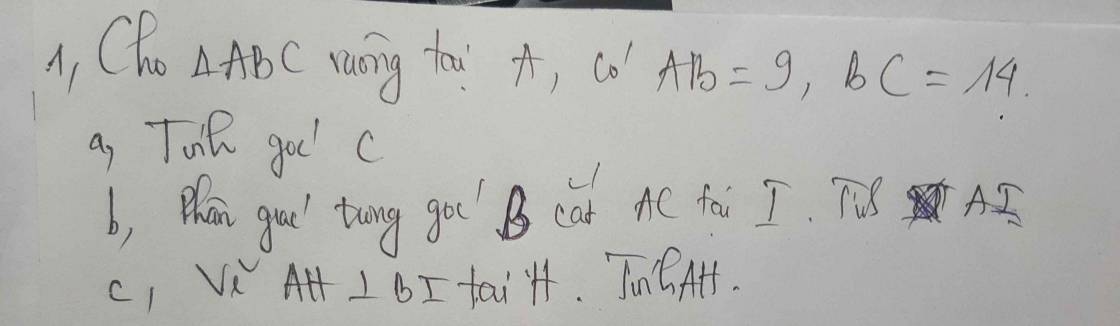 1, Cho ΔABC vuông tại A, có AB = 9, BC = 14.
a, Tính góc C
b, Phân giác trong góc B cắt AC tại I. Tính AI
c, Vẽ AH ⊥ BI tại H. Tính AH.